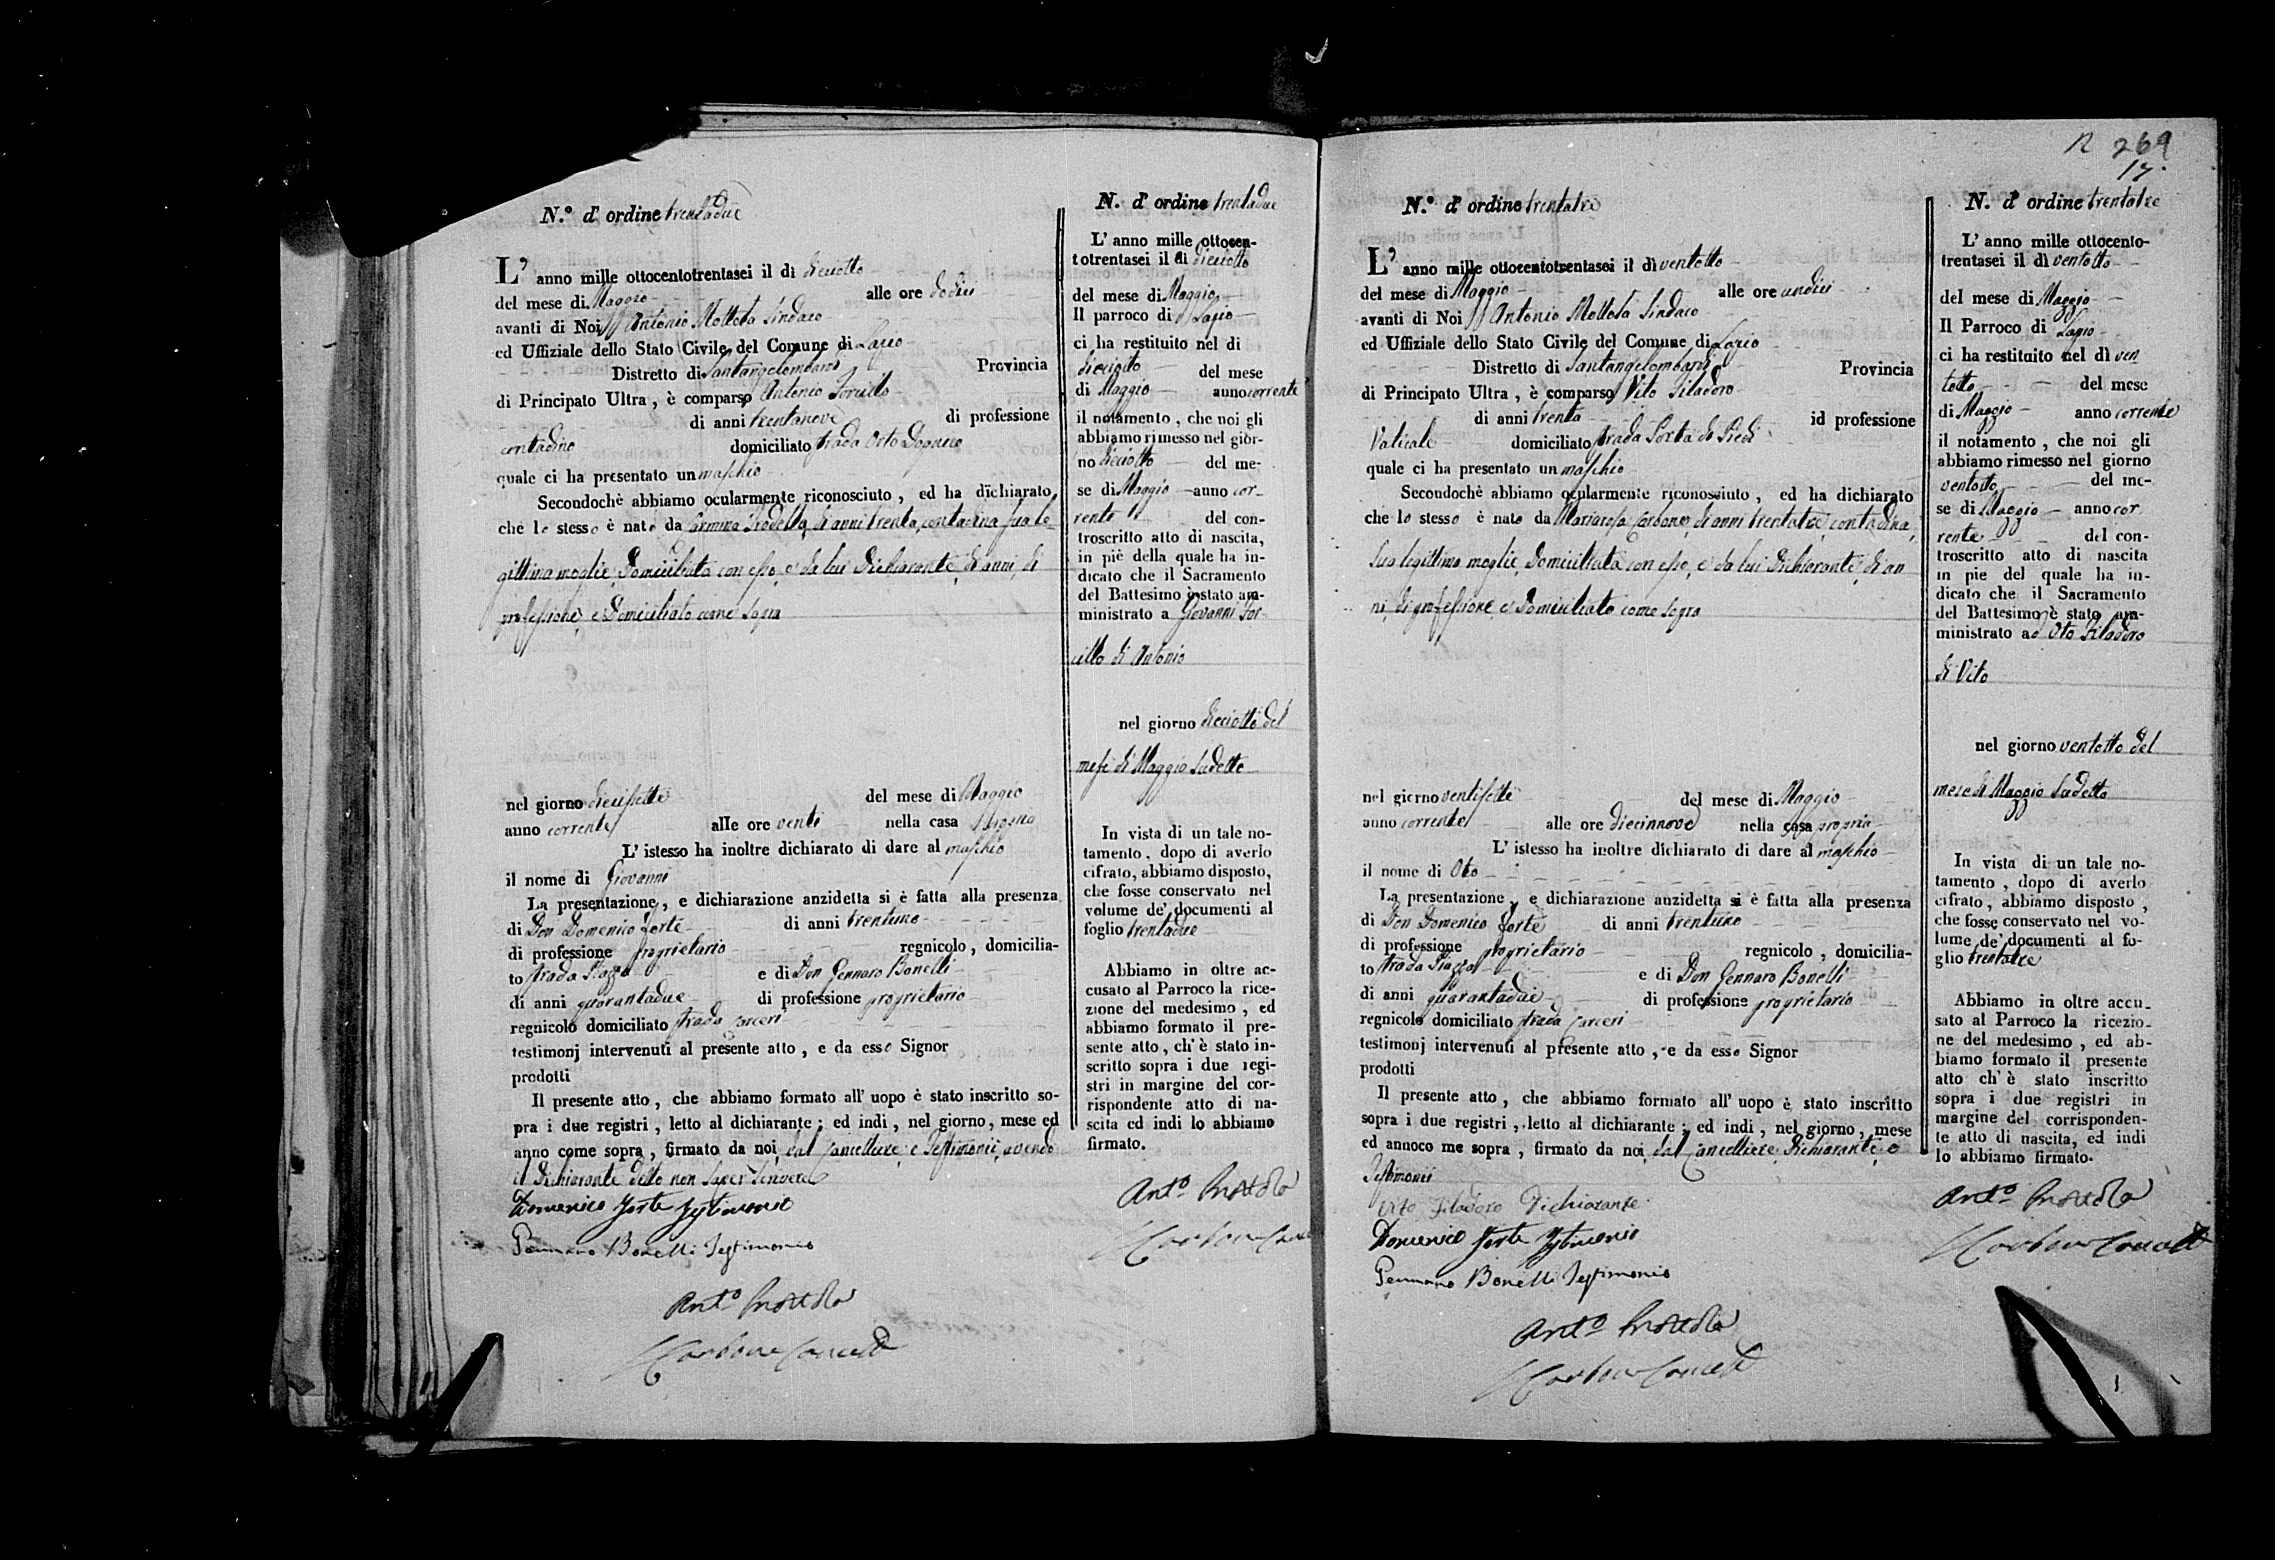 N.º d' ordine trentadue
L' anno mille ottocentotrentasei il dì dieciotto
del mese di Maggio alle ore dodici
avanti di Noi Antonio Mottola Sindaco
ed Uffiziale dello Stato Civile del Comune di Lapio
Distretto di Santangelombardi Provincia
di Principato Ultra, è comparso Antonio
di anni trentanove di professione
contadino domiciliato strada Orto
quale ci ha presentato un maschio
Secondochè abbiamo ocularmente riconosciuto, ed ha dichiarato
che lo stesso è nato da Carmina di anni trenta, contadina sua le-
gittima moglie, domiciliata con esso, e da lui Dichiarante, di anni, di
professione, e domiciliato come sopra
nel giorno diecisette del mese di Maggio
anno corrente alle ore venti nella casa propria
L' istesso ha inoltre dichiarato di dare al maschio
il nome di Giovanni
La presentazione, e dichiarazione anzidetta si è fatta alla presenza
di Don Domenico Forte di anni trentuno
di professione proprietario regnicolo, domicilia-
to strada Piazza e di Don Gennaro Bonelli
di anni quarantadue di professione proprietario
regnicolo domiciliato strada Carceri
testimonj intervenuti al presente atto, e da esso Signor
prodotti
Il presente atto, che abbiamo formato all' uopo è stato inscritto so-
pra i due registri, letto al dichiarante; ed indi, nel giorno, mese ed
anno come sopra, firmato da noi, dal Cancelliere, e Testimonii, avendo
il Dichiarante detto non saper scrivere
Domenico Forte Testimonio
Gennaro Bonelli Testimonio
Ant.º Mottola
Carbone
N. d' ordine trentadue
L' anno mille ottocen-
totrentasei il dì dieciotto
del mese di Maggio
Il parroco di Lapio
ci ha restituito nel di
dieciotto del mese
di Maggio anno corrente
il notamento, che noi gli
abbiamo rimesso nel gior-
no dieciotto del me-
se di Maggio anno cor-
rente del con-
troscritto atto di nascita,
in piè della quale ha in-
dicato che il Sacramento
del Battesimo è stato am-
ministrato a Giovanni
di Antonio
nel giorno dieciotto del
mese di Maggio sudetto
In vista di un tale no-
tamento, dopo di averlo
cifrato, abbiamo disposto,
che fosse conservato nel
volume de' documenti al
foglio trentadue
Abbiamo in oltre ac-
cusato al Parroco la rice-
zione del medesimo, ed
abbiamo formato il pre-
sente atto, ch' è stato in-
scritto sopra i due regi-
stri in margine del cor-
rispondente atto di na-
scita ed indi lo abbiamo
firmato.
Ant.º Mottola
Carbone
269
17.
N.º d' ordine trentatre
L' anno mille ottocentotrentasei il dì ventotto
del mese di Maggio alle ore undici
avanti di Noi Antonio Mottola Sindaco
ed Uffiziale dello Stato Civile del Comune di Lapio
Distretto di Santangelombardi Provincia
di Principato Ultra, è comparso Vito Filadoro
di anni trenta id professione
Vaticale domiciliato strada Porta di Piedi
quale ci ha presentato un maschio
Secondochè abbiamo ocularmente riconosciuto, ed ha dichiarato
che lo stesso è nato da Mariarosa Carbone, di anni trentatre, contadina,
sua legittima moglie, domiciliata con esso, e da lui Dichiarante, di an
ni, di professione, e domiciliato come sopra
nel giorno ventisette del mese di Maggio
anno corrente alle ore diecinnove nella casa propria
L' istesso ha inoltre dichiarato di dare al maschio
il nome di Oto
La presentazione, e dichiarazione anzidetta si è fatta alla presenza
di Don Domenico Forte di anni trentuno
di professione proprietario regnicolo, domicilia-
to strada Piazza e di Don Gennaro Bonelli
di anni quarantadue di professione proprietario
regnicolo domiciliato strada Carceri
testimonj intervenuti al presente atto, e da esso Signor
prodotti
Il presente atto, che abbiamo formato all' uopo è stato inscritto
sopra i due registri, letto al dichiarante; ed indi, nel giorno, mese
ed annoco me sopra, firmato da noi, dal Cancelliere, Dichiarante, e
Testimonii
Vito Filadoro Dichiarante
Domenico Forte Testimonio
Gennaro Bonelli Testimonio
Ant.º Mottola
Carbone
N. d' ordine trentatre
L' anno mille ottocento-
trentasei il dì ventotto
del mese di Maggio
Il Parroco di Lapio
ci ha restituito nel dì ven
totto del mese
di Maggio anno corrente
il notamento, che noi gli
abbiamo rimesso nel giorno
ventotto del me-
se di Maggio anno cor
rente del con-
troscritto atto di nascita
in pie del quale ha in-
dicato che il Sacramento
del Battesimo è stato am-
ministrato ad Oto Filadoro
di Vito
nel giorno ventotto del
mese di Maggio sudetto
In vista di un tale no-
tamento, dopo di averlo
cifrato, abbiamo disposto,
che fosse conservato nel vo-
lume de' documenti al fo-
glio trentatre
Abbiamo in oltre accu-
sato al Parroco la ricezio-
ne del medesimo, ed ab-
biamo formato il presente
atto ch' è stato inscritto
sopra i due registri in
margine del corrisponden-
te atto di nascita, ed indi
lo abbiamo firmato.
Ant.º Mottola
Carbone